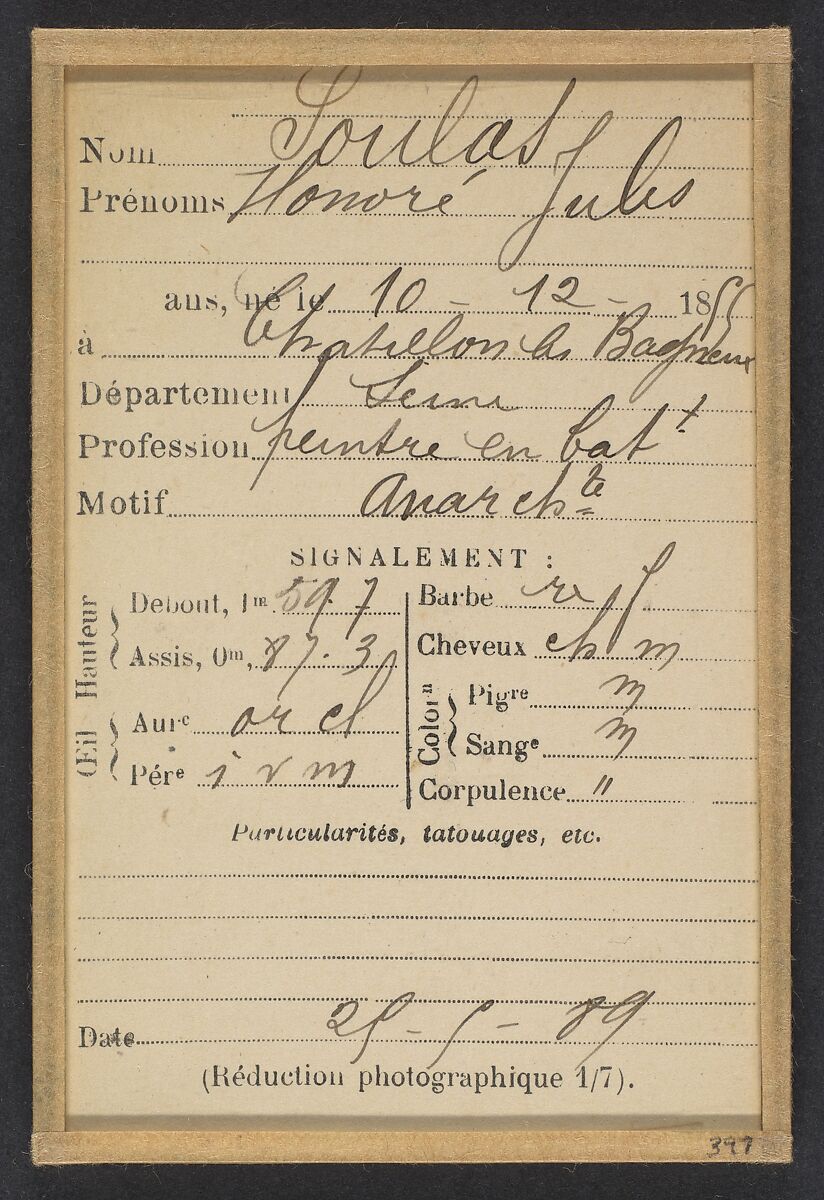 Nom Soulas
Prénoms Honoré Jules
ans, né le 10 - 12 - 1855
à Chatillon les Bagneux
Département Seine
Profession peintre en bat.t
Motif Anarchte
SIGNALEMENT :
Œil Hauteur
Debout, 1m 59.7
Assis, 0m, 87.3
Aure or cl
Pére i v m
Barbe
Cheveux ch m
Colorn
Pigre m
Sange m
Corpulence "
Particularités, tatouages, etc.
Date 25 - 5 - 89
(Réduction photographique 1/7).
397